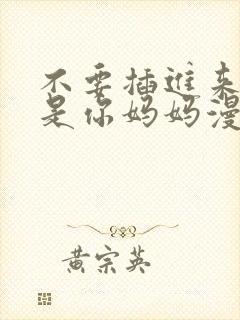 不要插进来
是你妈妈漫
黄宗英